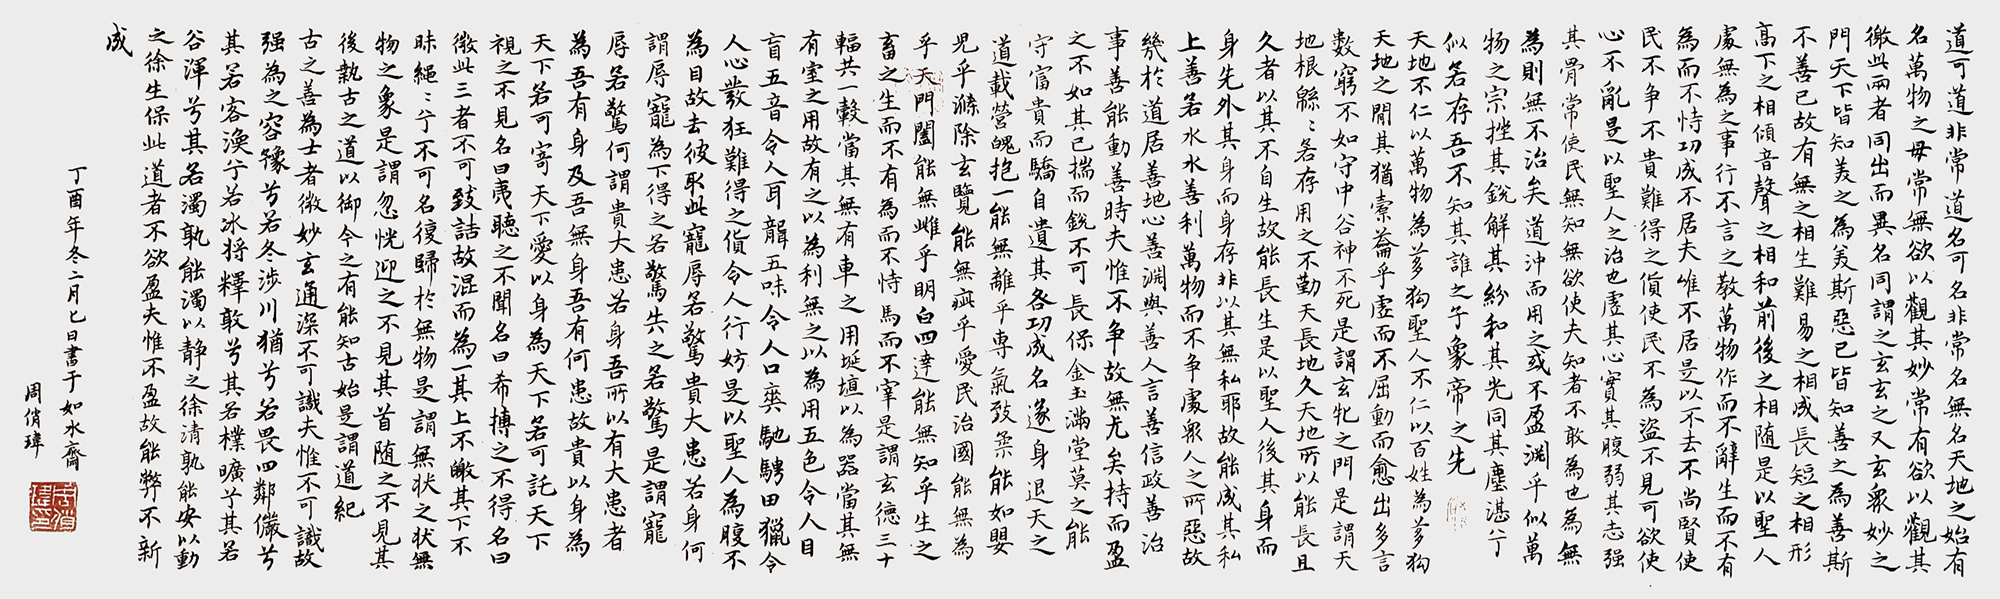 道可道非常道名可名非常名無名天地之始有
名萬物之母常無欲以觀其妙常有欲以觀其
徼此兩者同出而異名同謂之玄玄之又玄衆妙之
門天下皆知美之為美斯惡已皆知善之為善斯
不善已故有無之相生難易之相成長短之相形
高下之相傾音聲之相和前後之相随是以聖人
處無為之事行不言之教萬物作而不辭生而不有
為而不恃功成不居夫惟不居是以不去不尚賢使
民不争不貴難得之貨使民不為盗不見可欲使
心不亂是以聖人之治也虚其心實其腹弱其志强
其骨常使民無知無欲使夫知者不敢為也為無
為則無不治矣道沖而用之或不盈淵乎似萬
物之宗挫其銳解其紛和其光同其塵湛兮
似若存吾不知其誰之子象帝之先
天地不仁以萬物為芻狗聖人不仁以百姓為芻狗
天地之間其猶橐籥乎虚而不屈動而愈出多言
數窮不如守中谷神不死是謂玄牝之門是謂天
地根緜〻若存用之不勤天長地久天地所以能長且
久者以其不自生故能長生是以聖人後其身而
身先外其身而身存非以其無私耶故能成其私
上善若水水善利萬物而不争處衆人之所惡故
幾於道居善地心善淵與善人言善信政善治
事善能動善時夫惟不争故無尤矣持而盈
之不如其已揣而銳不可長保金玉滿堂莫之能
守富貴而驕自遺其咎功成名遂身退天之
道載營魄抱一能無離乎專氣致柔能如嬰
兒乎滌除玄覽能無疵乎愛民治國能無為
乎天門闔能無雌乎明白四達能無知乎生之
畜之生而不有為而不恃焉而不宰是謂玄德三十
輻共一轂當其無有車之用埏埴以為器當其無
有室之用故有之以為利無之以為用五色令人目
盲五音令人耳聾五味令人口爽馳騁田獵令
人心發狂難得之貨令人行妨是以聖人為腹不
為目故去彼取此寵辱若驚貴大患若身何
謂辱寵為下得之若驚失之若驚是謂寵
辱若驚何謂貴大患若身吾所以有大患者
為吾有身及吾無身吾有何患故貴以身為
天下若可寄天下愛以身為天下若可託天下
視之不見名曰夷聽之不聞名曰希搏之不得名曰
微此三者不可致詰故混而為一其上不皦其下不
昧繩〻兮不可名復歸於無物是謂無狀之狀無
物之象是謂忽恍迎之不見其首随之不見其
後執古之道以御今之有能知古始是謂道紀
古之善為士者微妙玄通深不可識夫惟不可識故
强為之容豫兮若冬涉川猶兮若畏四鄰儼兮
其若容渙兮若冰將釋敦兮其若樸曠兮其若
谷渾兮其若濁孰能濁以静之徐清孰能安以動
之徐生保此道者不欲盈夫惟不盈故能弊不新
成
丁酉年冬二月七日書于如水齋
周俏瑋